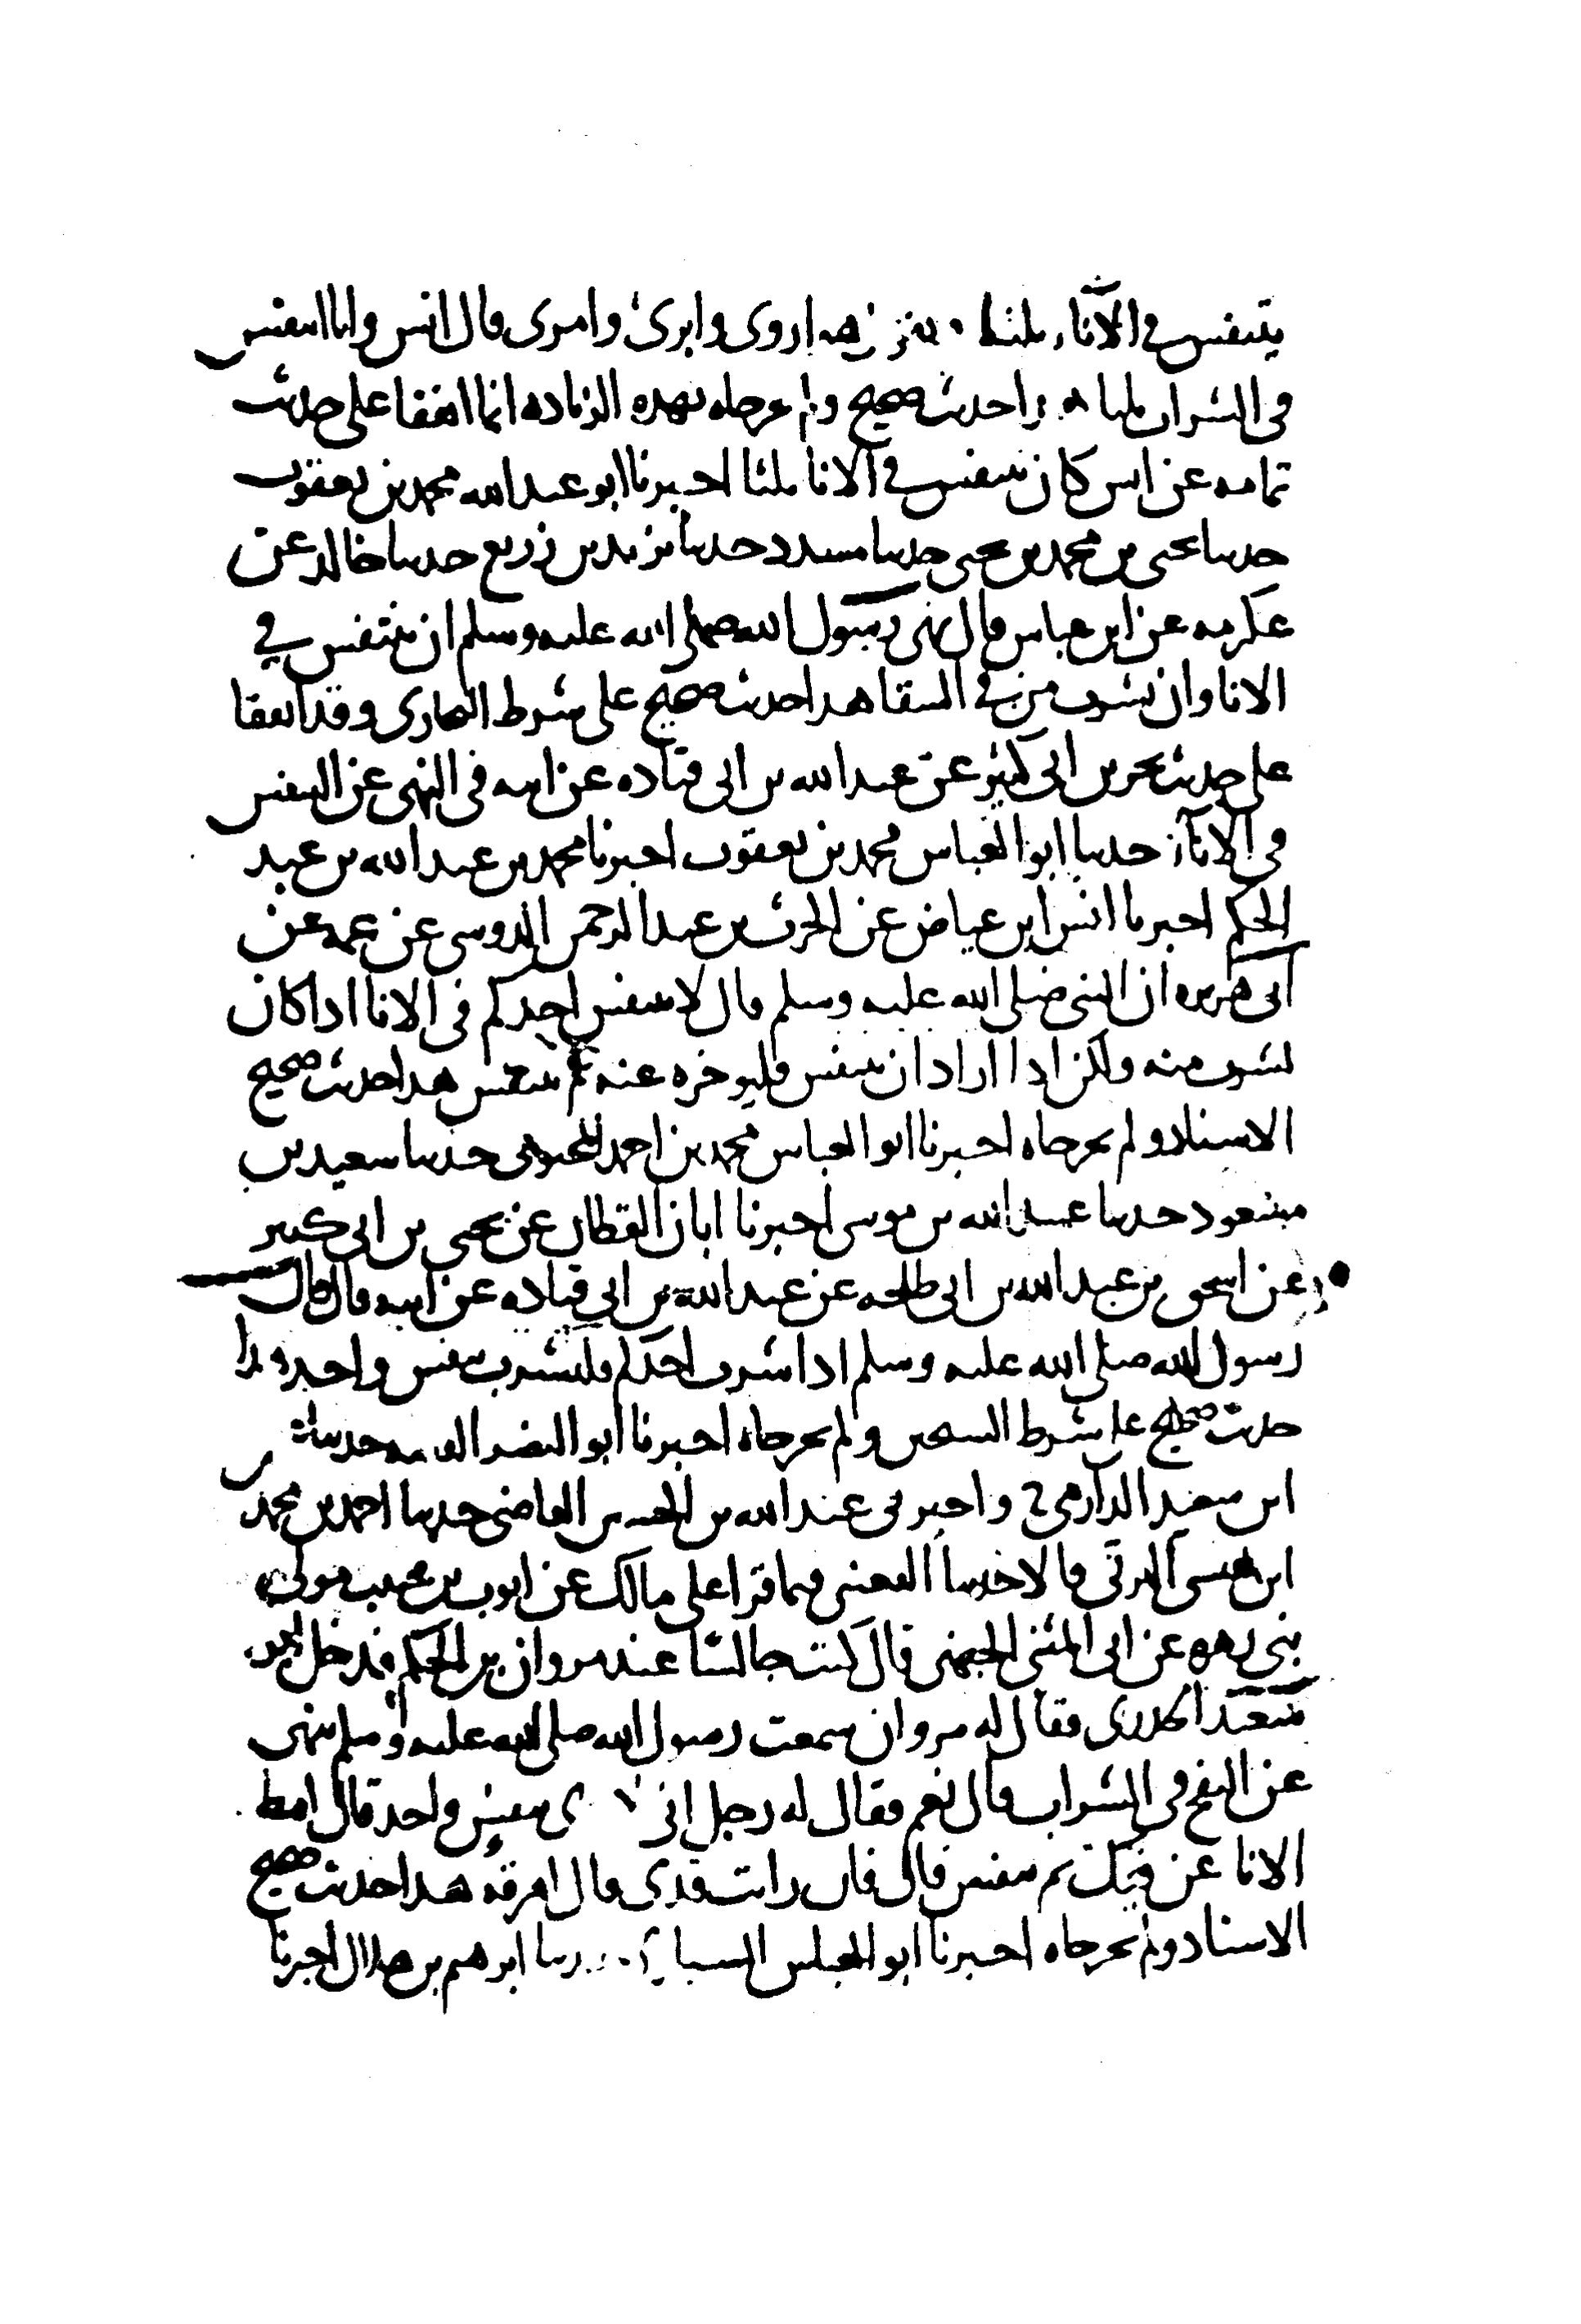 يتنفس في الآناء ثلثا اروى وابرئ وامرى قال انس وانا اتنفس
في الشراب ثلثا هذا حديث صحيح ولم يخرجاه بهذه الزياده انما اتفقا على حديث
ثمامه عن انس كان يتنفس في الانا ثلثا اخبرنا ابو عبد الله محمد بن يعقوب
حدثنا يحيى بن محمد بن يحيى حدثنا مسدد حدثنا يزيد بن زريع حدثنا خالد عن
عكرمه عن ابن عباس قال نهى رسول الله صلى الله عليه وسلم ان يتنفس في
الانا وان يشرب من في السقا هذا حديث صحيح على شرط البخارى وقد اتفقا
على حديث يحيى بن ابى كثير عن عبد الله بن ابى قتاده عن ابيه في النهى عن التنفس
في الاناء حدثنا ابو العباس محمد بن يعقوب اخبرنا محمد بن عبد الله بن عبد
الحكم اخبرنا انس ابن عياض عن الحرث بن عبد الرحمن الدوسى عن عمه عن
ابى هريره ان النبى صلى الله عليه وسلم قال لا يتنفس احدكم في الانا اذا كان
يشرب منه ولكن اذا اراد ان يتنفس فليوخره عنه ثم يتنفس هذا حديث صحيح
الاسناد ولم يخرجاه اخبرنا ابو العباس محمد بن احمد المحبوبى حدثنا سعيد بن
مسعود حدثنا عبيد الله بن موسى اخبرنا ابان القطان عن يحيى بن ابى كثير
عن اسحق بن عبد الله بن ابى طلحه عن عبد الله بن ابى قتاده عن ابيه قال قال
رسول الله صلى الله عليه وسلم اذا شرب احدكم فليشرب بنفس واحد هذا
حديث صحيح على شرط الشيخين ولم يخرجاه اخبرنا ابو النضر الفقيه حدثنا
ابن سعيد الدارمى ح واخبرنى عبد الله بن الحسين القاضى حدثنا احمد بن محمد
ابن عيسى البرتى قالا حدثنا القعنبى فيما قرا على مالك عن ايوب بن حبيب مولى
بنى زهره عن ابى المثنى الجهنى قال كنت جالسا عند مروان بن الحكم فدخل ابو
سعيد الخدرى فقال له مروان سمعت رسول الله صلى الله عليه وسلم ينهى
عن النفخ في الشراب قال نعم فقال له رجل انى لا بنفس واحد قال امط
الانا عن فيك ثم تنفس قال فان رايت قذى قال اهرقه هذا حديث صحيح
الاسناد ولم يخرجاه اخبرنا ابو العباس السيارى حدثنا ابرهيم بن هلال اخبرنا